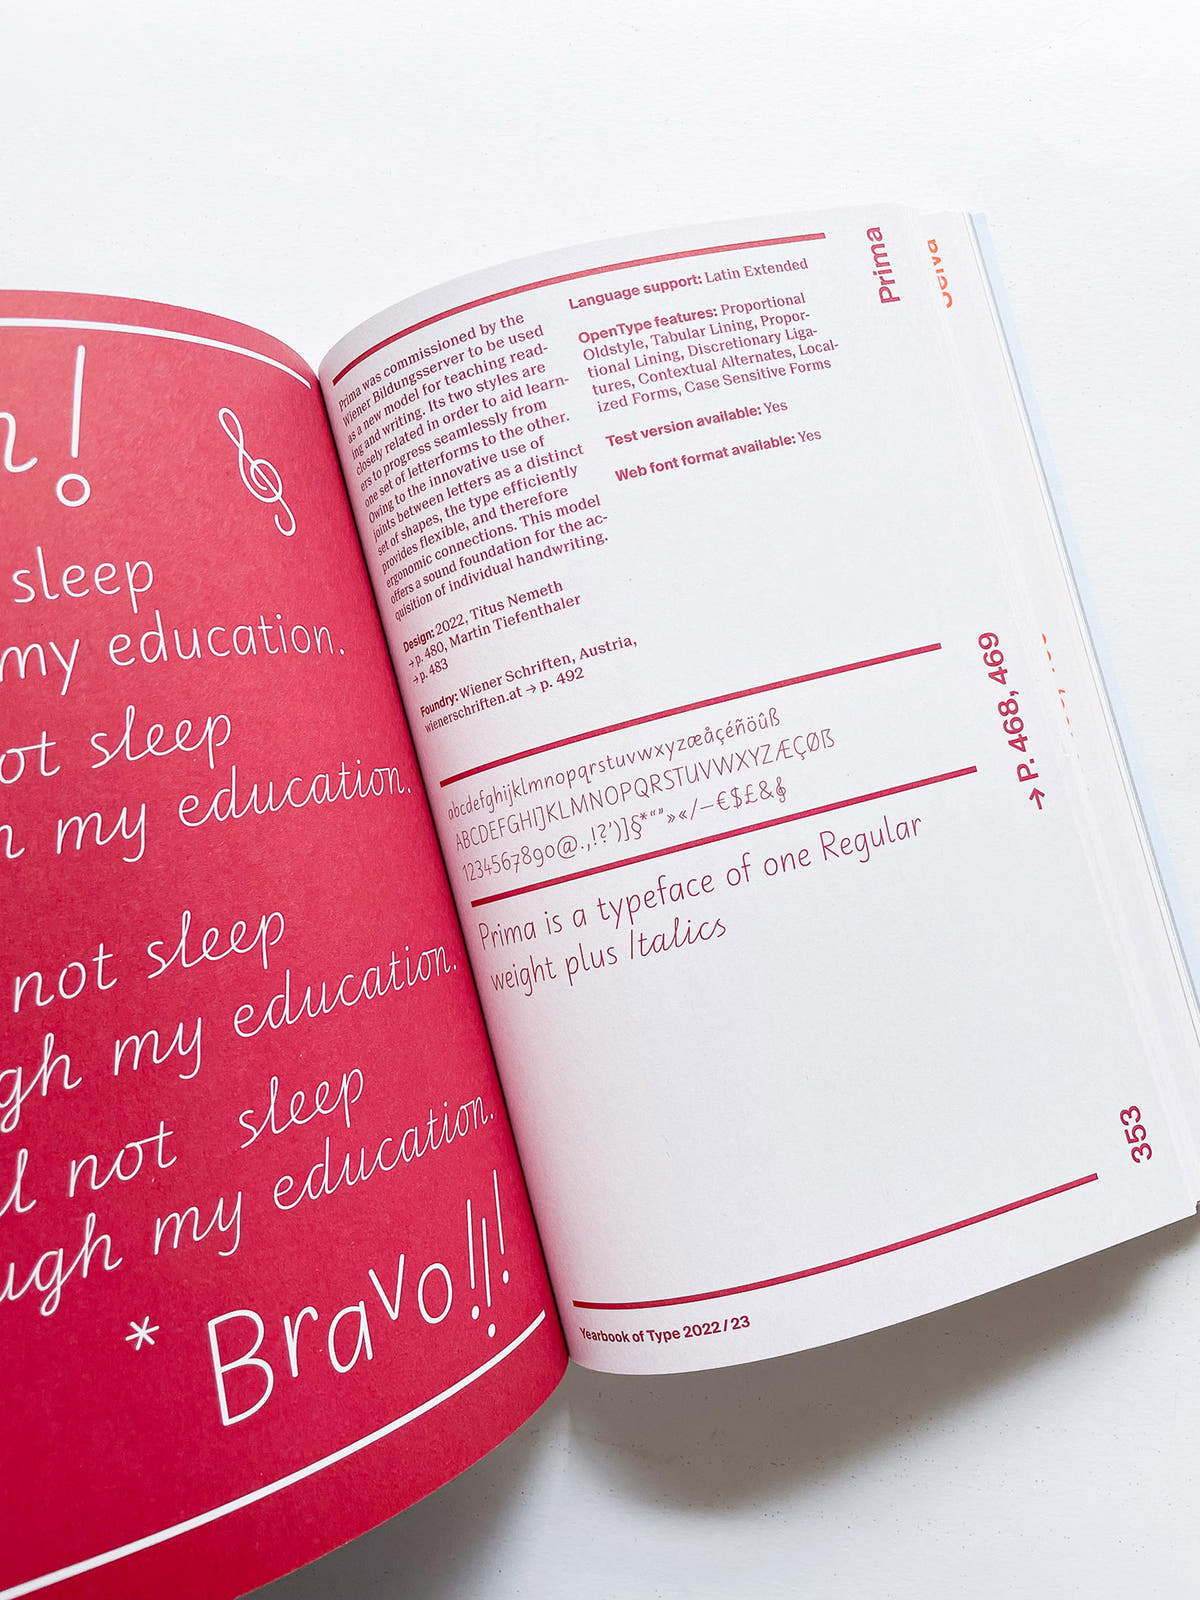 !
sleep
my education.
not sleep
my education.
not sleep
my education.
not sleep
my education.
* Bravo!!!
Prima was commissioned by the
Wiener Bildungsserver to be used
as a new model for teaching read-
ing and writing. Its two styles are
closely related in order to aid learn-
ers to progress seamlessly from
one set of letterforms to the other.
Owing to the innovative use of
joints between letters as a distinct
set of shapes, the type efficiently
provides flexible, and therefore
ergonomic connections. This model
offers a sound foundation for the ac-
quisition of individual handwriting.
Design: 2022, Titus Nemeth
→ p. 480, Martin Tiefenthaler
→ p. 483
Foundry: Wiener Schriften, Austria,
wienerschriften.at → p. 492
Language support: Latin Extended
OpenType features: Proportional
Oldstyle, Tabular Lining, Propor-
tional Lining, Discretionary Liga-
tures, Contextual Alternates, Local-
ized Forms, Case Sensitive Forms
Test version available: Yes
Web font format available: Yes
abcdefghijklmnopqrstuvwxyzæåçéñöûß
ABCDEFGHIJKLMNOPQRSTUVWXYZÆÇØẞ
1234567890@.,!?’)]§*“”»«/—€$£&
Prima is a typeface of one Regular
weight plus Italics
Yearbook of Type 2022 / 23
Prima
→ P. 468, 469
353